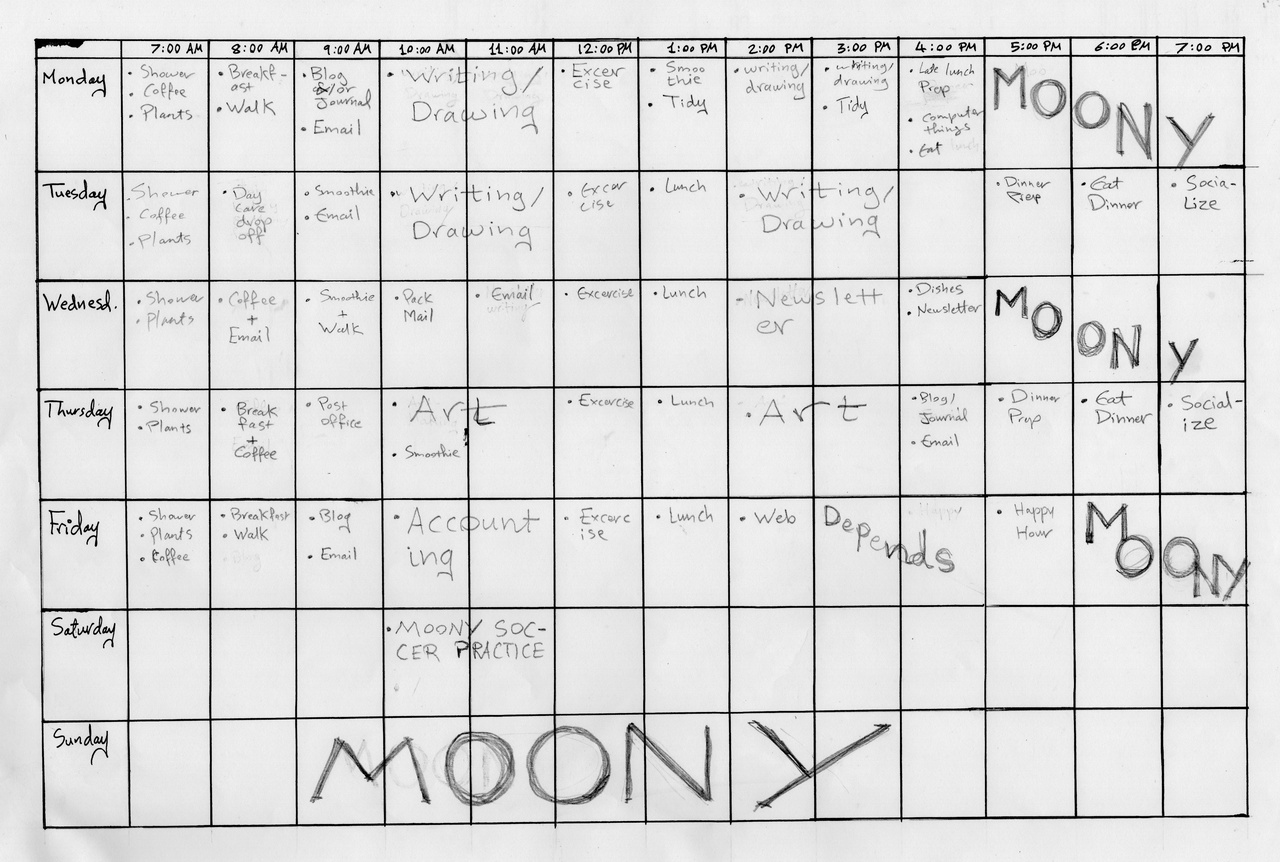 7:00 AM 8:00 AM 9:00 AM 10:00 AM 11:00 AM 12:00 PM 1:00 PM 2:00 PM 3:00 PM 4:00 PM 5:00 PM 6:00 PM 7:00 PM
Monday
• Shower
• Coffee
• Plants
• Breakf-
ast
• Walk
• Blog
or
Journal
• Email
• Writing/
Drawing
• Excer
cise
• Smoo
thie
• Tidy
• writing/
drawing
• writing/
drawing
• Tidy
• Late lunch
Prep
• Computer
things
• Eat
MOONY
Tuesday
• Shower
• Coffee
• Plants
• Day
care
drop
off
• Smoothie
• Email
• Writing/
Drawing
• Excer
cise
• Lunch
• Writing/
Drawing
• Dinner
Prep
• Eat
Dinner
• Socia-
Lize
Wednesd.
• Shower
• Plants
• Coffee
+
Email
• Smoothie
+
Walk
• Pack
Mail
• Email
• Excercise
• Lunch
• Newslett
er
• Dishes
• Newsletter
MOONY
Thursday
• Shower
• Plants
• Break
fast
+
Coffee
• Post
office
• Art
• Smoothie
• Excercise
• Lunch
• Art
• Blog/
Journal
• Email
• Dinner
Prep
• Eat
Dinner
• Social-
ize
Friday
• Shower
• Plants
• Coffee
• Breakfast
• Walk
• Blog
• Blog
• Email
• Account
ing
• Excerc
ise
• Lunch
• Web
Depends
• Happy
• Happy
Hour
MOONY
Saturday
• MOONY SOC-
CER PRACTICE
Sunday
MOONY